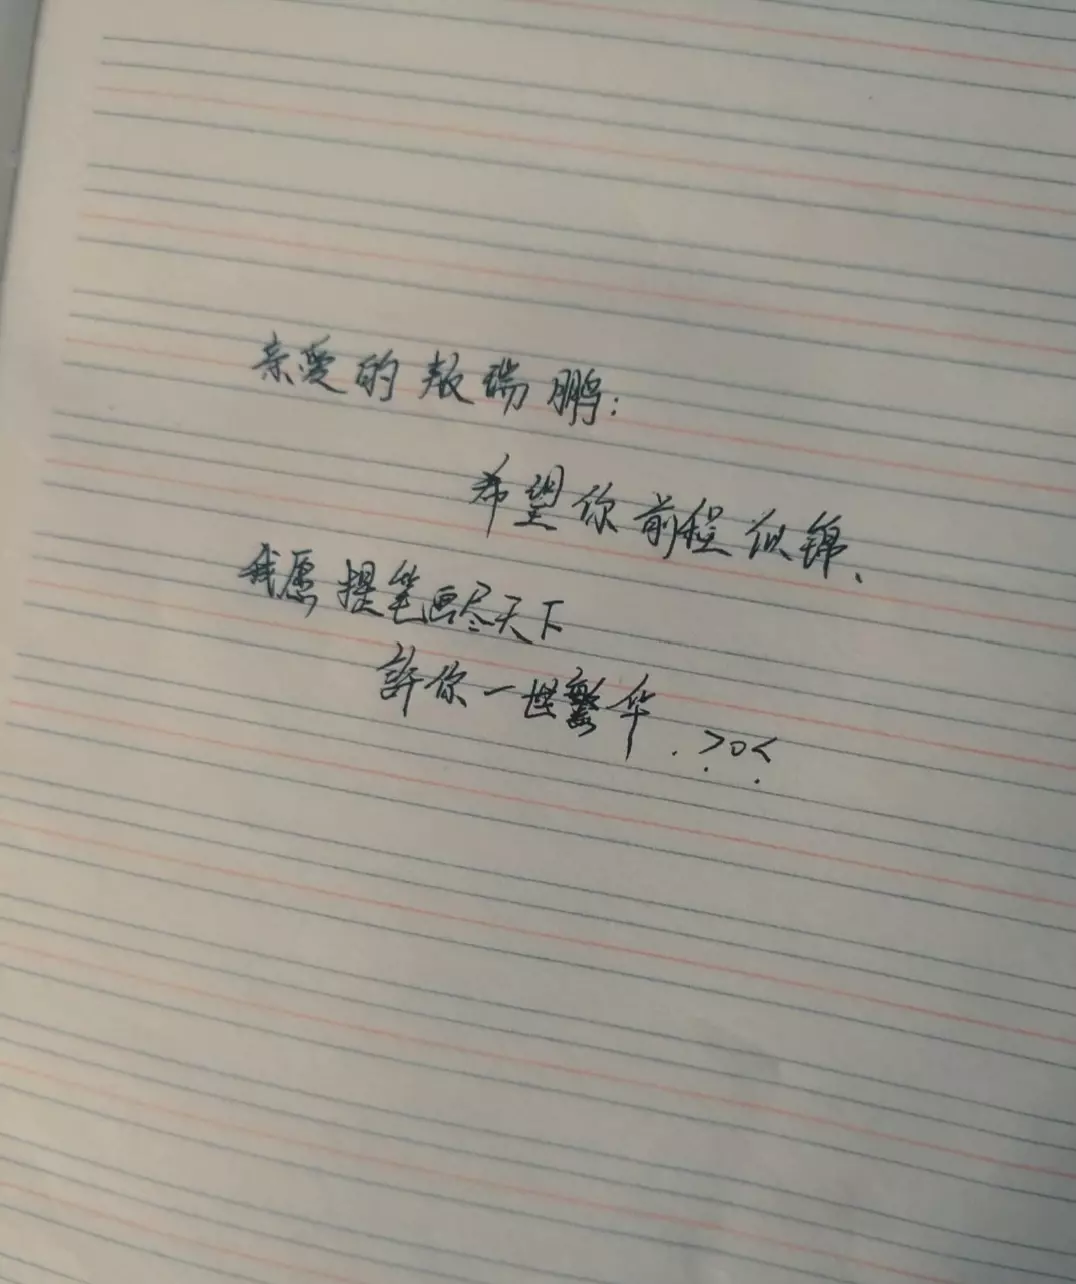 亲爱的敖瑞鹏:
希望你前程似锦、
我愿提笔画尽天下
許你一世繁华. >o<